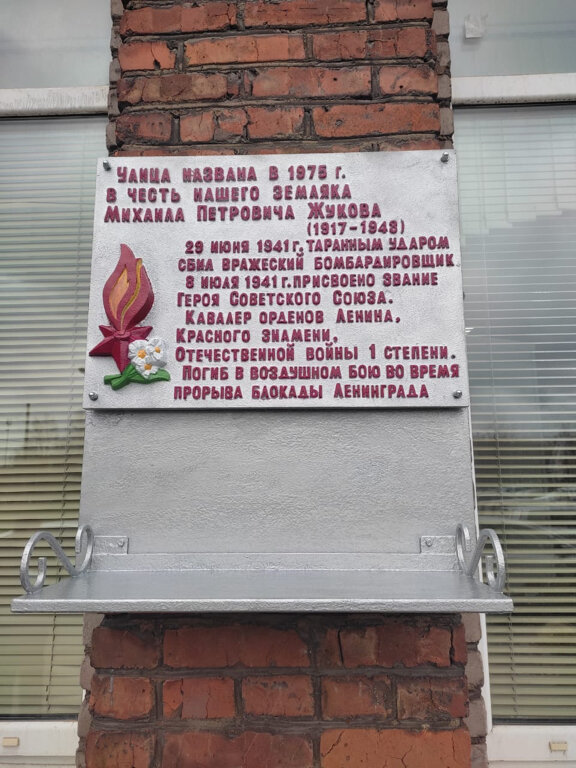 Улица названа в 1975 г.
в честь нашего земляка
Михаила Петровича Жукова
(1917-1943)
29 июня 1941 г. таранным ударом
сбил вражеский бомбардировщик
8 июля 1941 г. присвоено звание
Героя Советского Союза.
Кавалер орденов Ленина,
Красного Знамени,
Отечественной войны 1 степени.
Погиб в воздушном бою во время
прорыва блокады Ленинграда